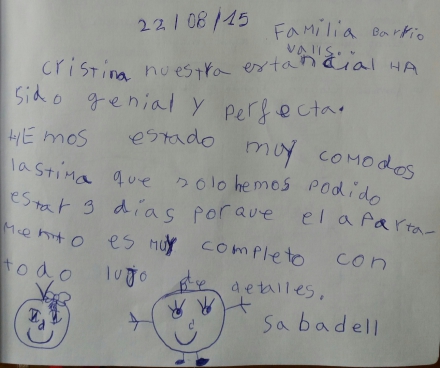 22/08/15
Familia Barrio
Valls.
Cristina nuestra estancial HA
sido genial y perfecta.
HEmos estado muy comodos
lastima que solo hemos podido
estar 3 dias porque el aparta-
miento es muy completo con
todo lujo de detalles.
Sabadell